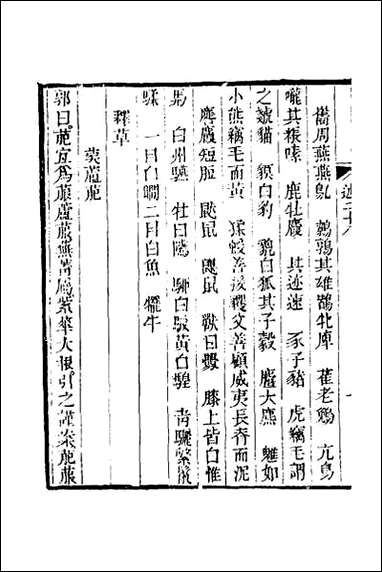 述二十八
巂周燕燕鳦　鷯鶉其雄鶛牝庳　萑老鵵　亢鳥
嚨其粻嗉　鹿牡麚　其迹速　豕子豬　虎竊毛謂
之虦貓　貘白豹　貔白狐其子縠　麠大麃　魋如
小熊竊毛而黃　猱蝯善援玃父善顧威夷長脊而泥
麔麚短脰　鼣鼠　鼶鼠　獸曰釁　膝上皆白惟
馬　白州驠　牡曰騭　駵白駁黃白騜　青驪繁鬣
騥　一目白瞷二目白魚　犤牛
釋草
葖蘆萉
郭曰萉宜為菔蘆菔蕪菁屬紫華大根引之謹案萉菔